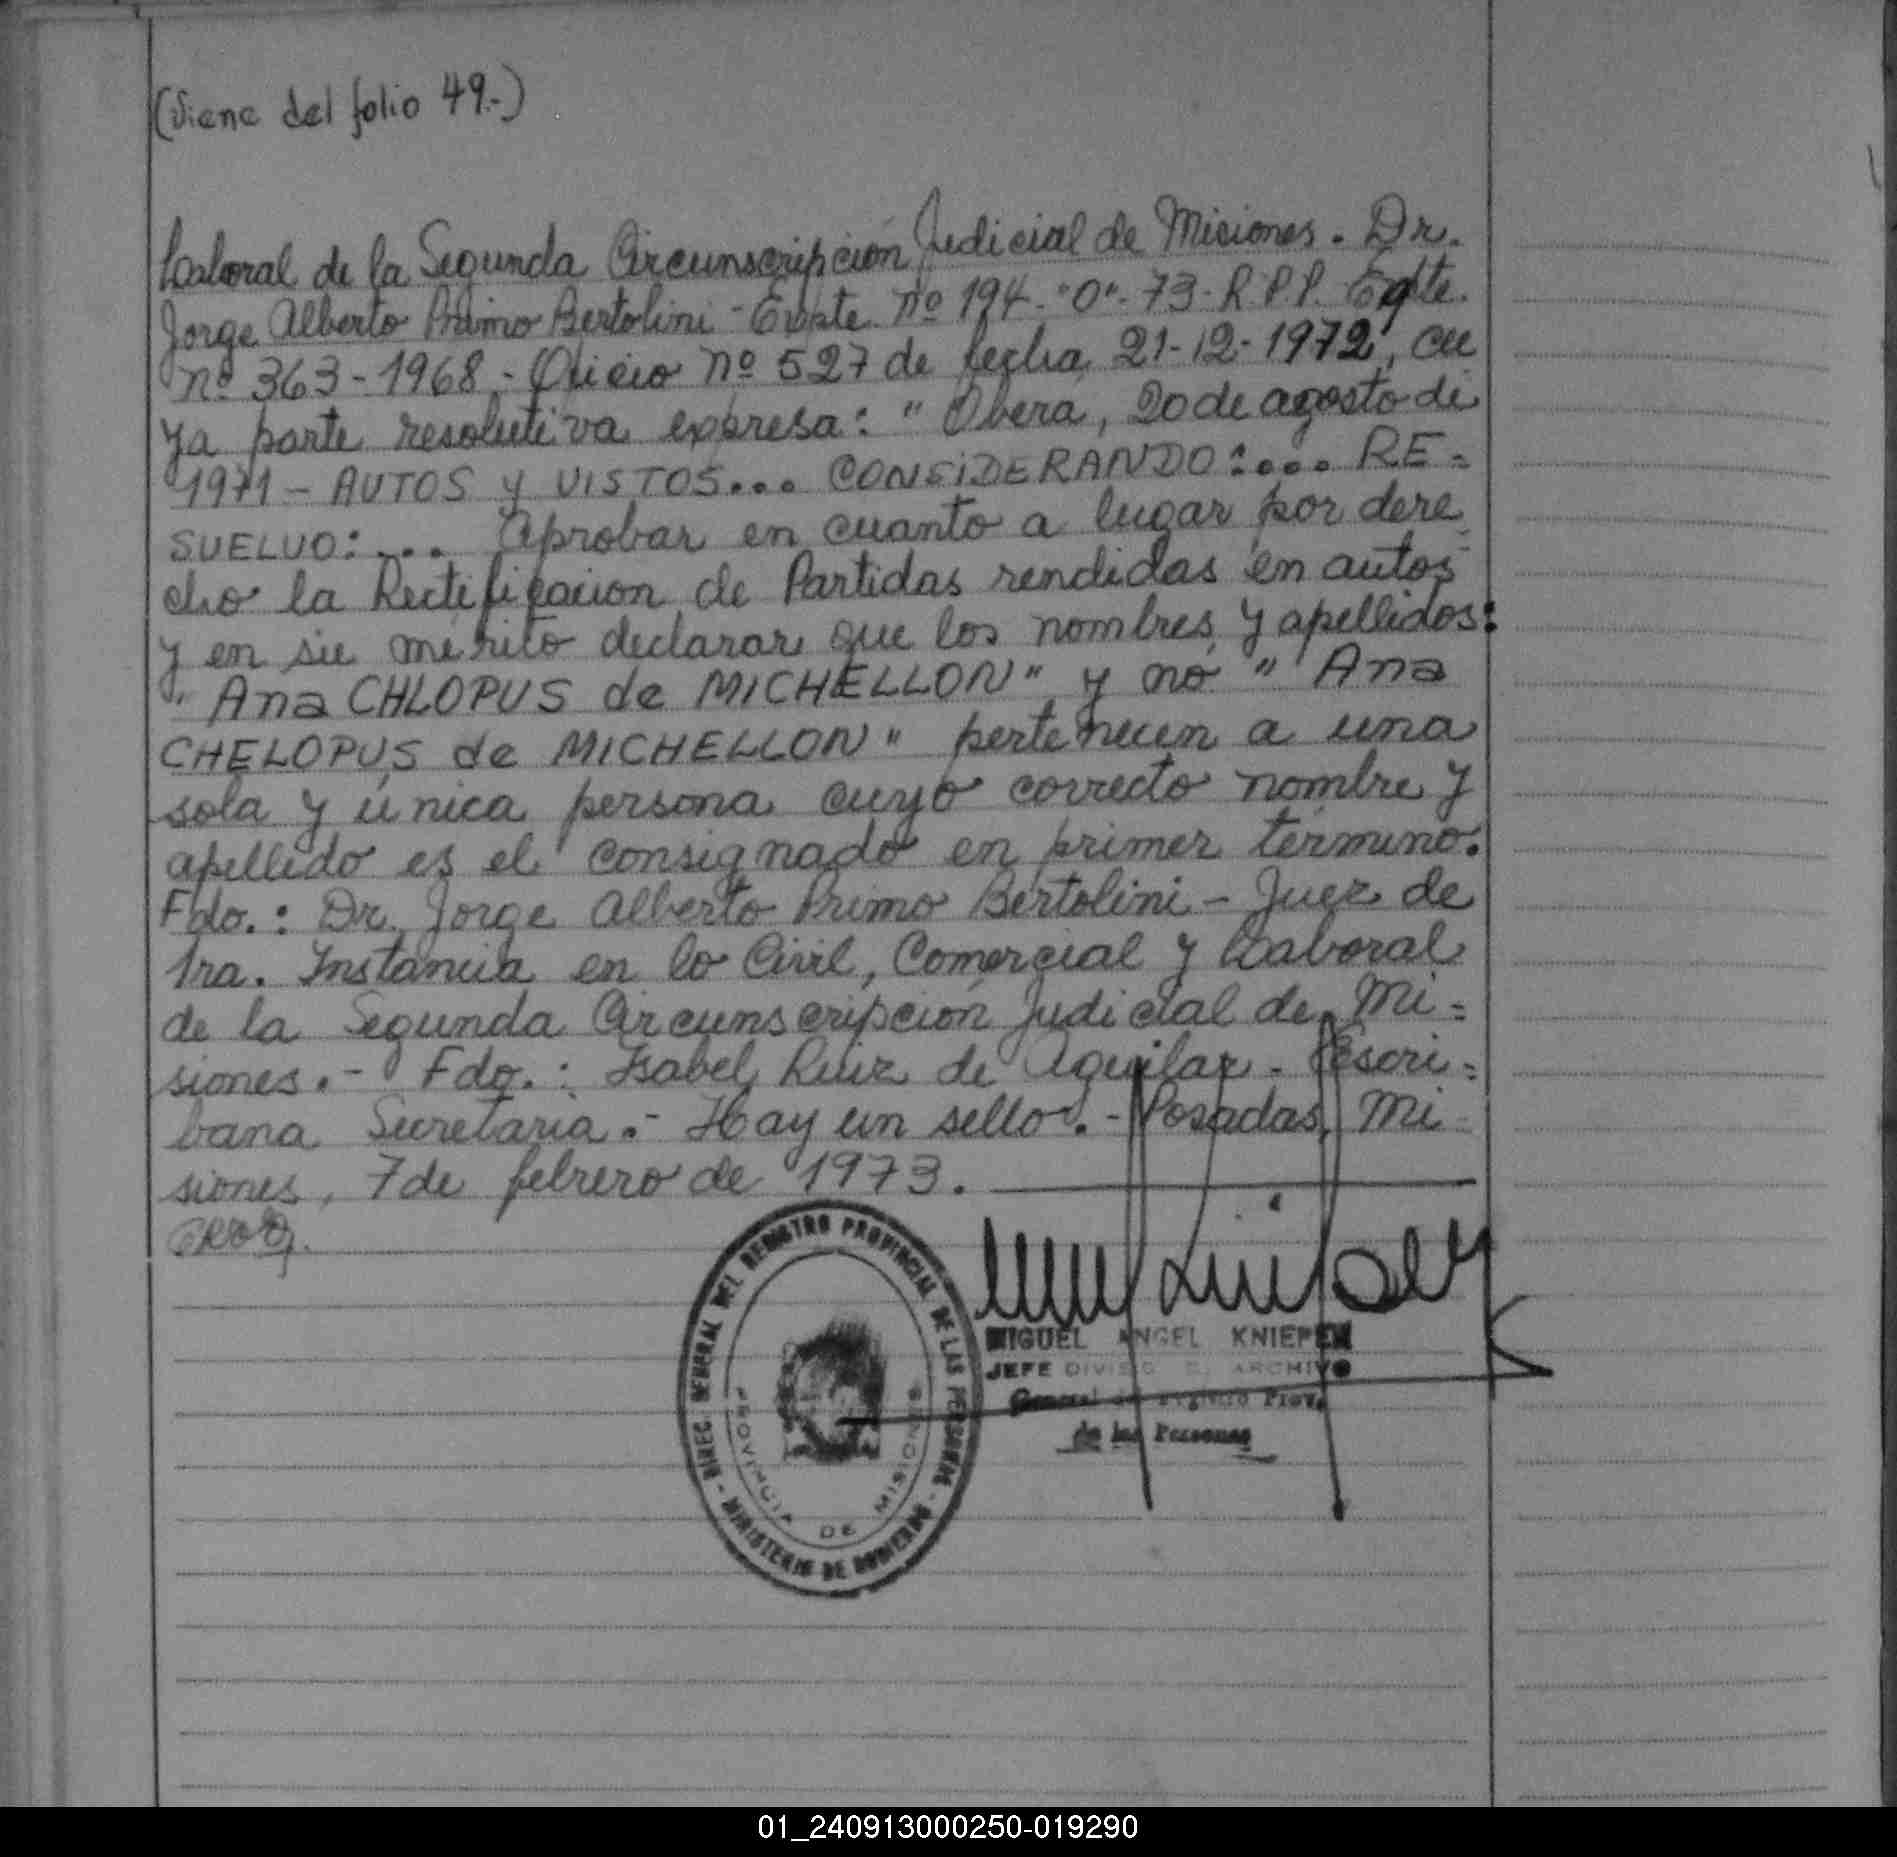 (Viene del folio 49.-)
Laboral de la Segunda Circunscripción Judicial de Misiones. Dr.
Jorge Alberto Primo Bertolini - Expte. nº 194 - "O" - 73 - R.P.P. Expte.
nº 363 - 1968 - Oficio nº 527 de fecha 21-12-1972, cu
ya parte resolutiva expresa: " Oberá, 20 de agosto de
1971 - AUTOS y VISTOS... CONSIDERANDO:... RE=
SUELVO:... Aprobar en cuanto a lugar por dere
cho la Rectificacion de Partidas rendidas en autos
y en su mérito declarar que los nombres y apellidos:
" Ana CHLOPUS de MICHELLON" y no " Ana
CHELOPUS de MICHELLON" pertenecen a una
sola y única persona cuyo correcto nombre y
apellido es el consignado en primer término.
Fdo.: Dr. Jorge Alberto Primo Bertolini - Juez de
1ra. Instancia en lo Civil, Comercial y Laboral
de la Segunda Circunscripción Judicial de Mi=
siones.- Fdo.: Isabel Ruiz de Aguilar - Escri=
bana Secretaria.- Hay un sello.- Posadas, Mi
siones, 7 de febrero de 1973.
DIREC. GENERAL DEL REGISTRO PROVINCIAL DE LAS PERSONAS - MINISTERIO DE GOBIERNO -
PROVINCIA DE MISIONES
MIGUEL ANGEL KNIEPEN
JEFE DIVISIO ARCHIVO
General Prov.
de las Personas
01_240913000250-019290